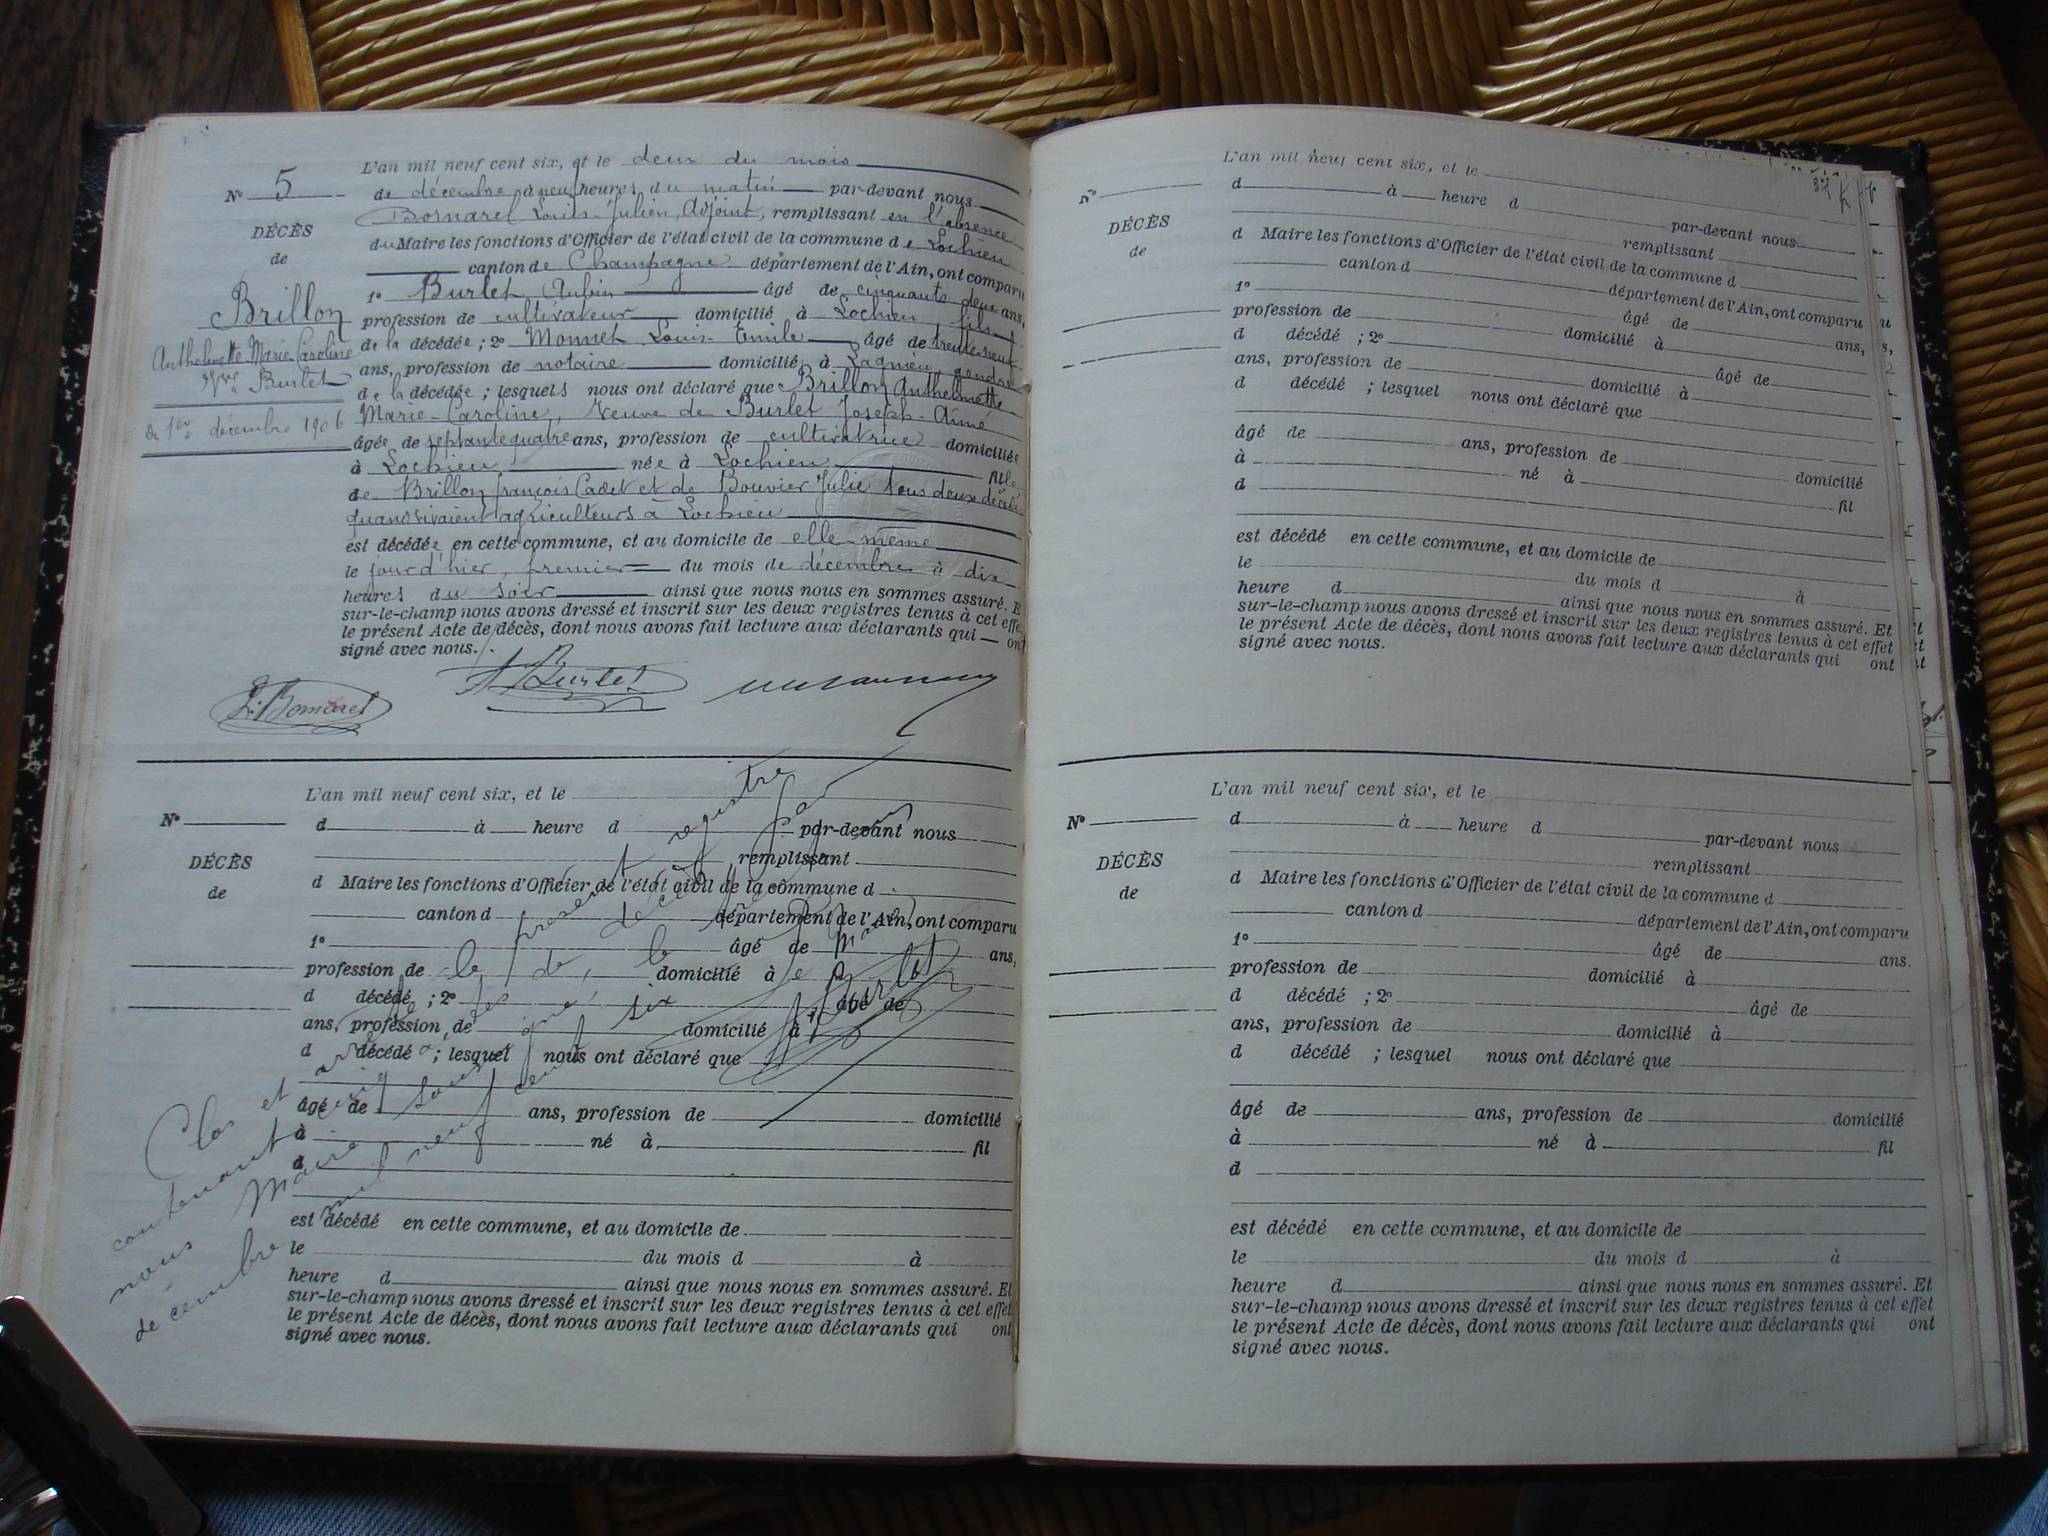 L'an mil neuf cent six, et le deux du mois
N° 5
de décembre à neuf heures du matin par-devant nous
Bornarel Louis-Julien, Adjoint, remplissant en l'absence
DÉCÈS
du Maire les fonctions d'Officier de l'état civil de la commune de Lochieu
de
canton de Champagne département de l'Ain, ont comparu
Brillon
Anthelmette Marie Caroline
Vve Burlet
du 1er décembre 1906
1° Burlet Aubin âgé de cinquante deux ans,
profession de cultivateur domicilié à Lochieu fils
de la décédée ; 2° Monnet Louis-Emile âgé de trente-neuf
ans, profession de notaire domicilié à Lagnieu, gendre
de la décédée ; lesquels nous ont déclaré que Brillon Anthelmette
Marie-Caroline, Veuve de Burlet Joseph-Aimé
âgée de septante quatre ans, profession de cultivatrice domiciliée
à Lochieu née à Lochieu fille
de Brillon françois Cadet et de Bouvier Julie tous deux décédés
quand vivaient agriculteurs à Lochieu
est décédée en cette commune, et au domicile de elle-même
le jour d'hier, premier du mois de décembre à dix
heures du soir ainsi que nous nous en sommes assuré. Et
sur-le-champ nous avons dressé et inscrit sur les deux registres tenus à cet effet
le présent Acte de décès, dont nous avons fait lecture aux déclarants qui ont
signé avec nous.
L. Bornarel
A Burlet
L'an mil neuf cent six, et le
N°
d à heure d par-devant nous
remplissant
DÉCÈS
d Maire les fonctions d'Officier de l'état civil de la commune d
de
canton d département de l'Ain, ont comparu
1° âgé de ans,
profession de domicilié à
d décédé ; 2° âgé de
ans, profession de domicilié à
d décédé ; lesquel nous ont déclaré que
âgé de ans, profession de domicilié
à né à fil
d
est décédé en cette commune, et au domicile de
le du mois d à
heure d ainsi que nous nous en sommes assuré. Et
sur-le-champ nous avons dressé et inscrit sur les deux registres tenus à cet effet
le présent Acte de décès, dont nous avons fait lecture aux déclarants qui ont
signé avec nous.
Clos et le présent registre
contenant de décès par
nous Maire
décembre mil neuf cent six
Burlet
L'an mil neuf cent six, et le
N°
d à heure d par-devant nous
remplissant
DÉCÈS
d Maire les fonctions d'Officier de l'état civil de la commune d
de
canton d département de l'Ain, ont comparu
1° âgé de ans,
profession de domicilié à
d décédé ; 2° âgé de
ans, profession de domicilié à
d décédé ; lesquel nous ont déclaré que
âgé de ans, profession de domicilié
à né à fil
d
est décédé en cette commune, et au domicile de
le du mois d à
heure d ainsi que nous nous en sommes assuré. Et
sur-le-champ nous avons dressé et inscrit sur les deux registres tenus à cet effet
le présent Acte de décès, dont nous avons fait lecture aux déclarants qui ont
signé avec nous.
L'an mil neuf cent six, et le
N°
d à heure d par-devant nous
remplissant
DÉCÈS
d Maire les fonctions d'Officier de l'état civil de la commune d
de
canton d département de l'Ain, ont comparu
1° âgé de ans.
profession de domicilié à
d décédé ; 2° âgé de
ans, profession de domicilié à
d décédé ; lesquel nous ont déclaré que
âgé de ans, profession de domicilié
à né à fil
d
est décédé en cette commune, et au domicile de
le du mois d à
heure d ainsi que nous nous en sommes assuré. Et
sur-le-champ nous avons dressé et inscrit sur les deux registres tenus à cet effet
le présent Acte de décès, dont nous avons fait lecture aux déclarants qui ont
signé avec nous.